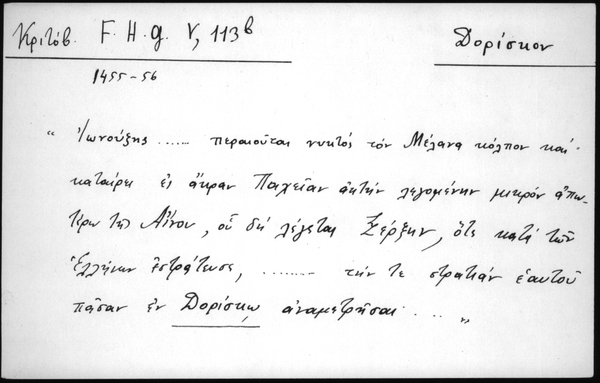 Κριτόβ. F.H.g. V, 113b
Δορίσκον
1455-56
" Ἰωνούζης ...... περαιοῦται νυκτὸς τὸν Μέλανα κόλπον καὶ
καταίρει ἐς ἄκραν Παχεῖαν ἀκτὴν λεγομένην μικρὸν ἀπω-
τέρω τῆς Αἴνου, οὗ δὴ λέγεται Ξέρξην, ὅτε κατὰ τῶν
Ἑλλήνων ἐστράτευσε, ........ τήν τε στρατιὰν ἑαυτοῦ
πᾶσαν ἐν Δορίσκῳ ἀναμετρῆσαι ... "